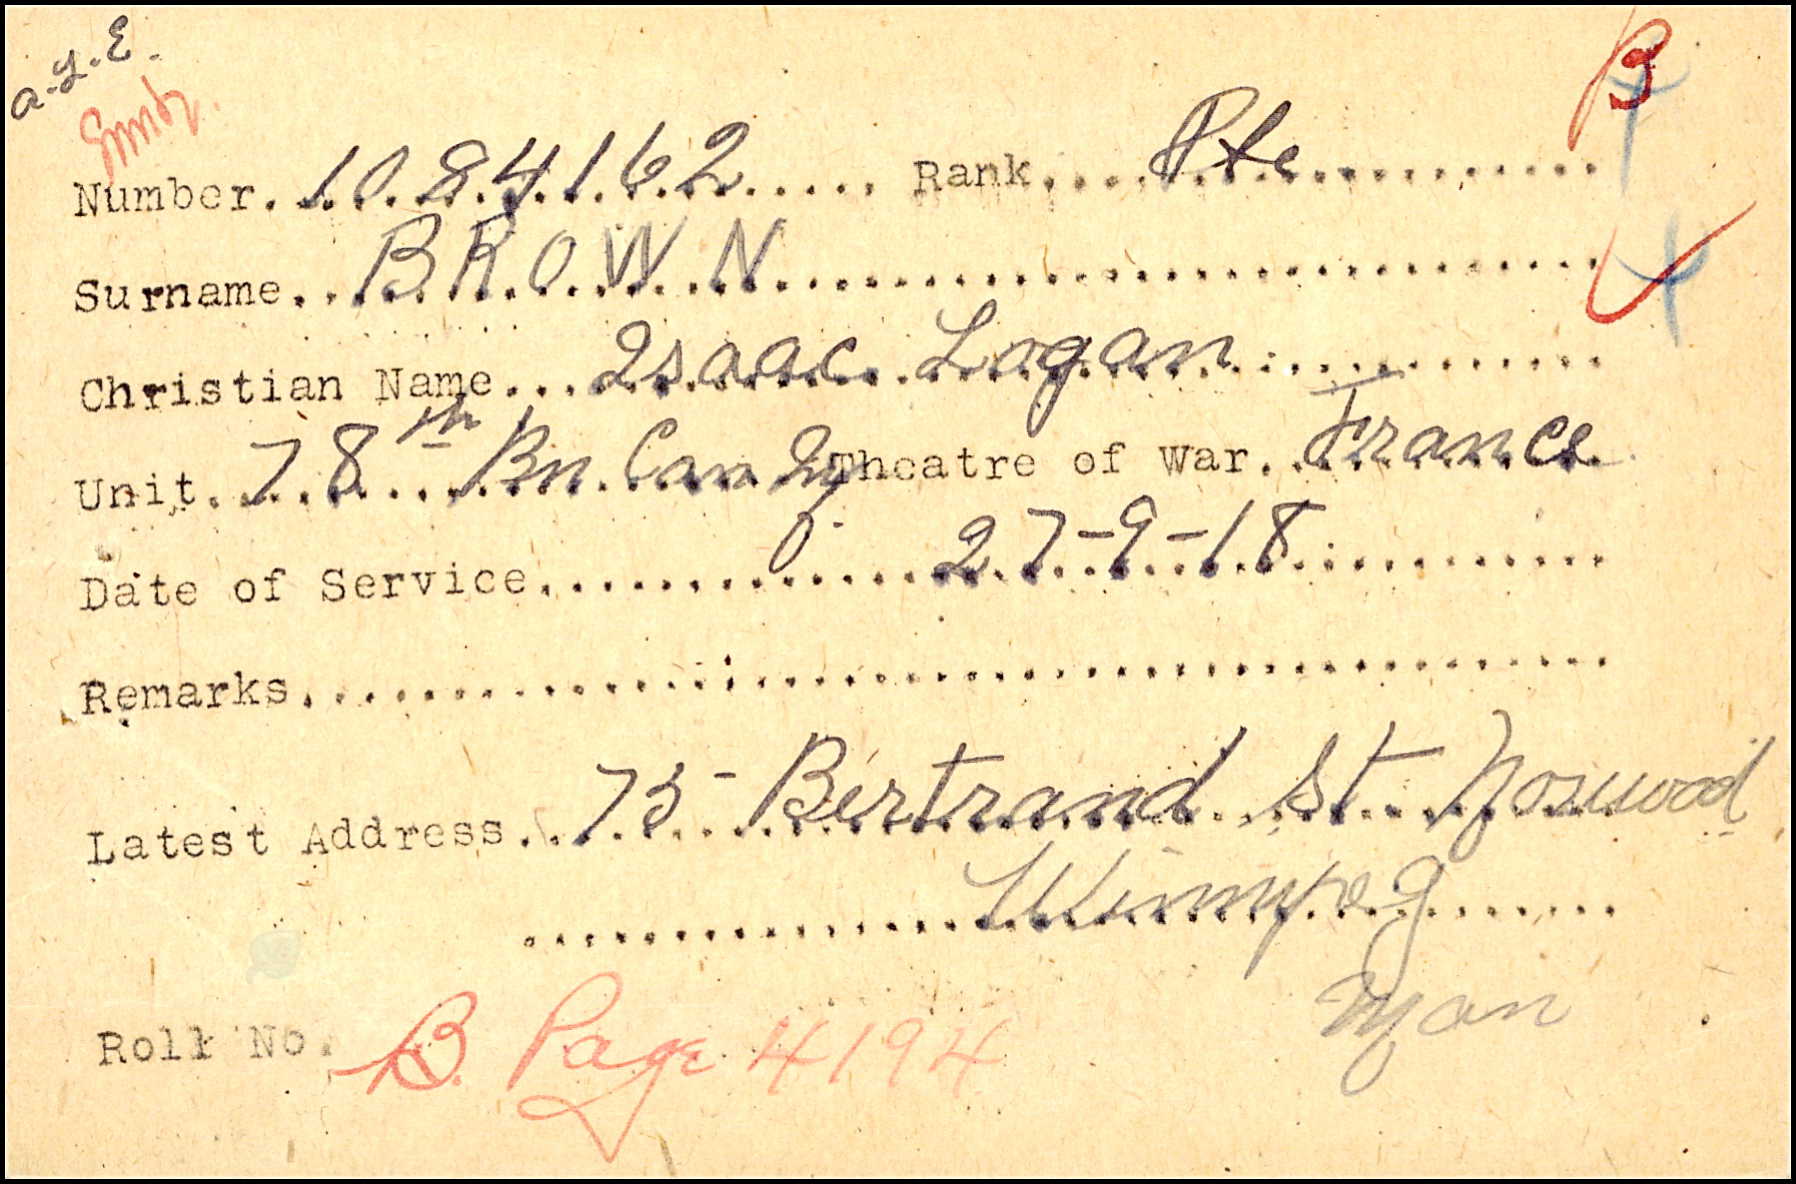 a.y.E.
B
Number. 1084162 ..... Rank.... Pte
Surname.. BROWN
Christian Name... Isaac Logan
Unit. 78th Bn. Can Inf Theatre of War. France
Date of Service. 27-9-18
Remarks.
Latest Address.. 75 - Bertrand St. Norwood
Winnipeg
Man
Roll No. B. Page 4194